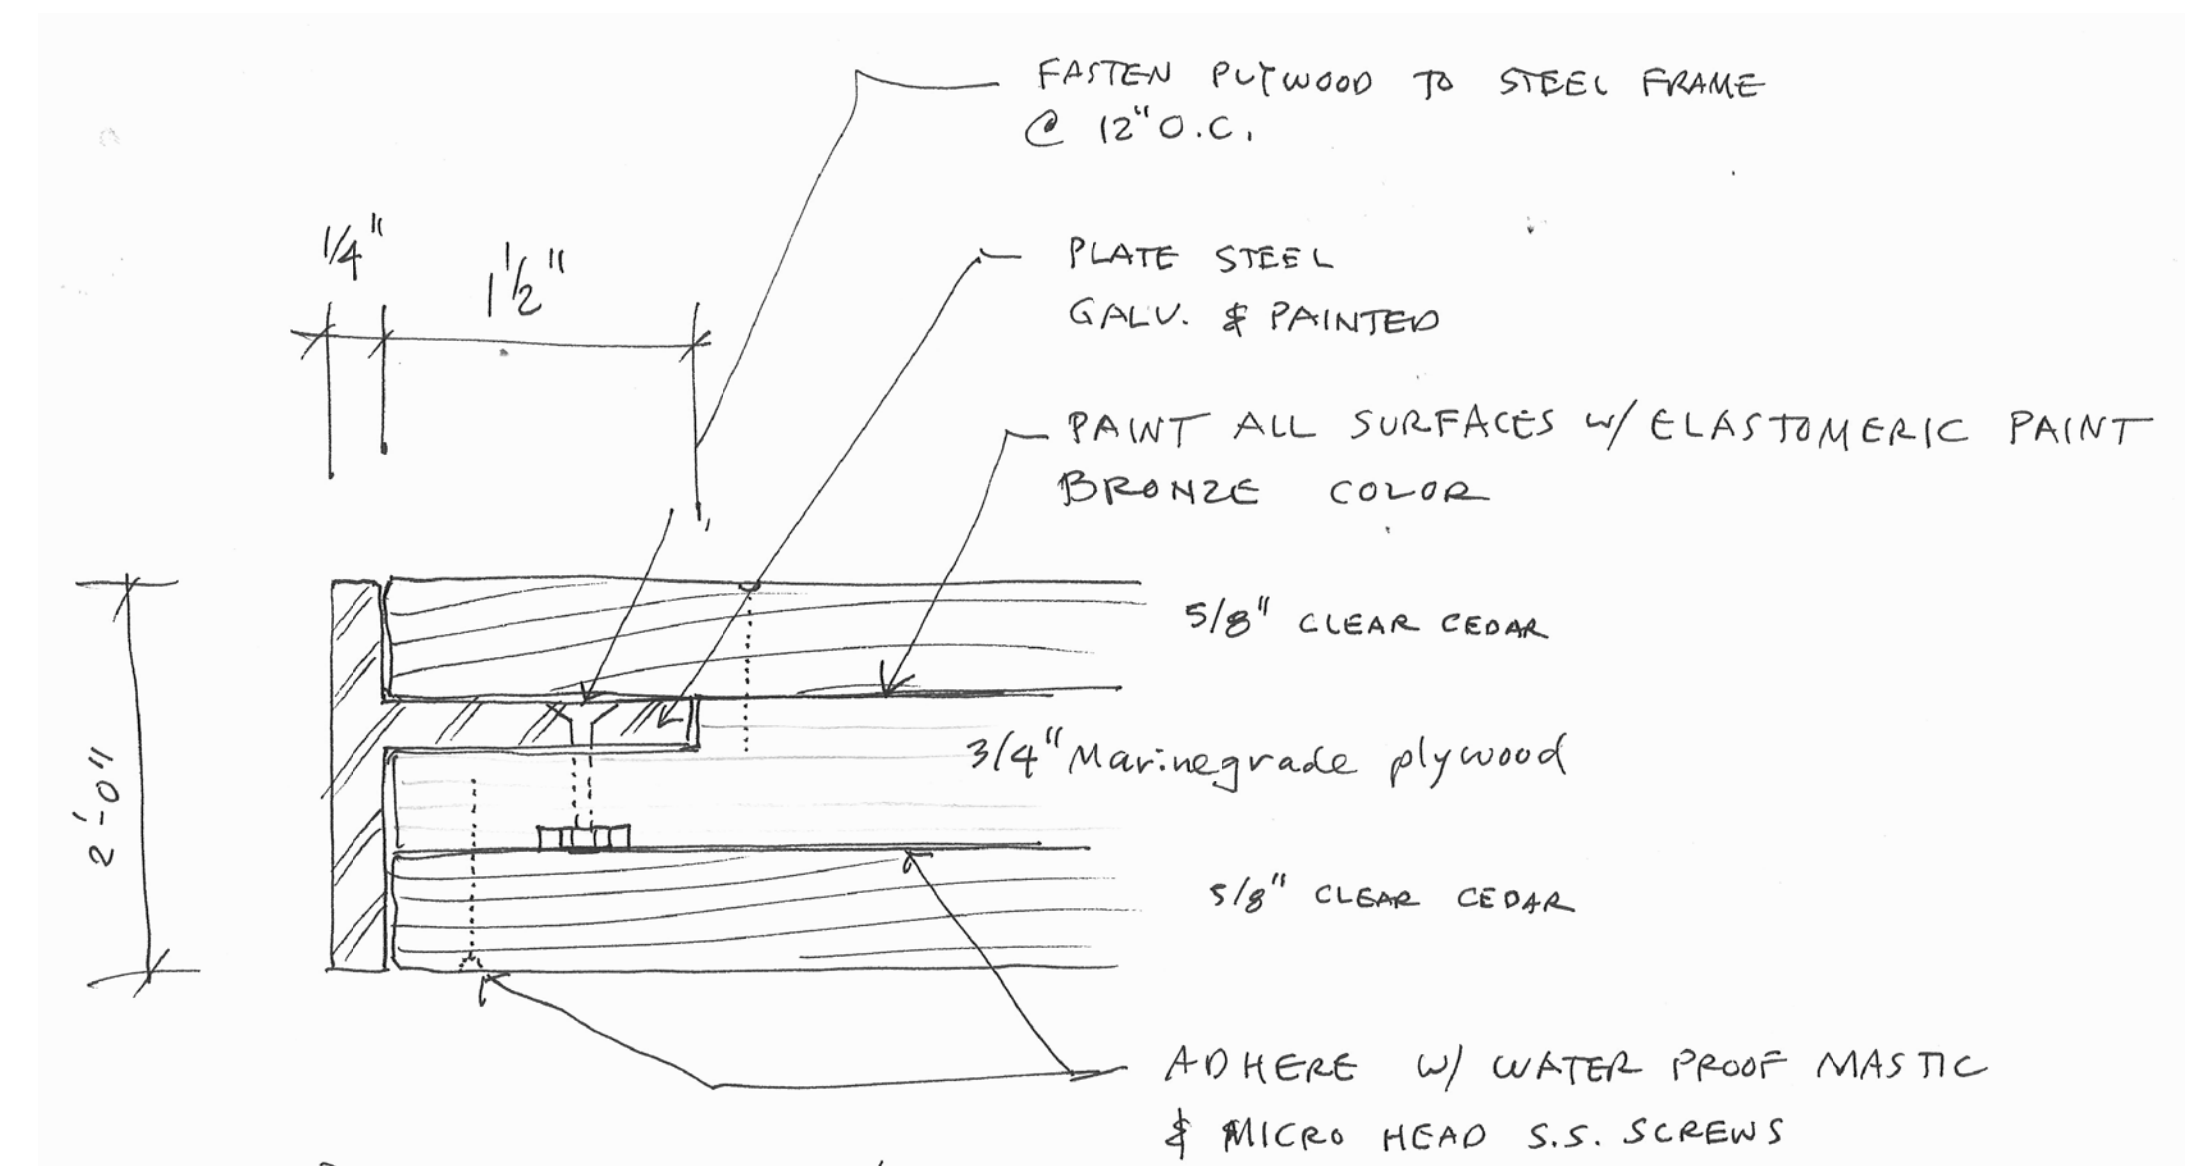 FASTEN PLYWOOD TO STEEL FRAME
@ 12" O.C.
1/4"
1 1/2"
PLATE STEEL
GALV. & PAINTED
PAINT ALL SURFACES W/ ELASTOMERIC PAINT
BRONZE COLOR
5/8" CLEAR CEDAR
3/4" Marinegrade plywood
2'-0"
5/8" CLEAR CEDAR
ADHERE W/ WATER PROOF MASTIC
& MICRO HEAD S.S. SCREWS